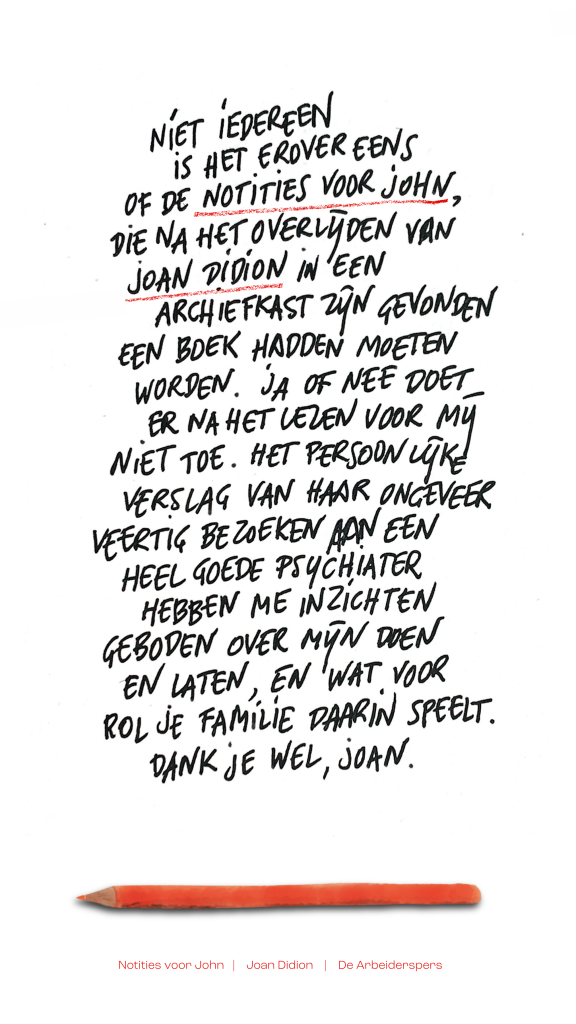 NIET IEDEREEN
IS HET EROVER EENS
OF DE NOTITIES VOOR JOHN,
DIE NA HET OVERLIJDEN VAN
JOAN DIDION IN EEN
ARCHIEFKAST ZIJN GEVONDEN
EEN BOEK HADDEN MOETEN
WORDEN. JA OF NEE DOET
ER NA HET LEZEN VOOR MIJ
NIET TOE. HET PERSOONLIJKE
VERSLAG VAN HAAR ONGEVEER
VEERTIG BEZOEKEN AAN EEN
HEEL GOEDE PSYCHIATER
HEBBEN ME INZICHTEN
GEBODEN OVER MIJN DOEN
EN LATEN, EN WAT VOOR
ROL JE FAMILIE DAARIN SPEELT.
DANK JE WEL, JOAN.
Notities voor John | Joan Didion | De Arbeiderspers